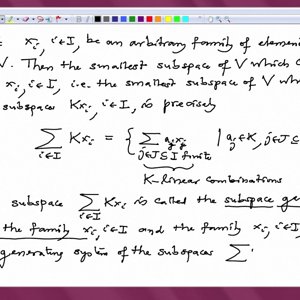 : xᵢ, i∈I, be an arbitrary family of elemen
V. Then the smallest subspace of V which c
xᵢ, i∈I, i.e. the smallest subspace of V wh
subspace Kxᵢ, i∈I, is precisely
∑_{i∈I} Kxᵢ = { ∑_{j∈J⊆I finite} aⱼxⱼ | aⱼ∈K, j∈J⊆I
K-linear combinations
subspace ∑_{i∈I} Kxᵢ is called the subspace ge
the family xᵢ, i∈I and the family xᵢ, i∈I
generating system of the subspaces ∑